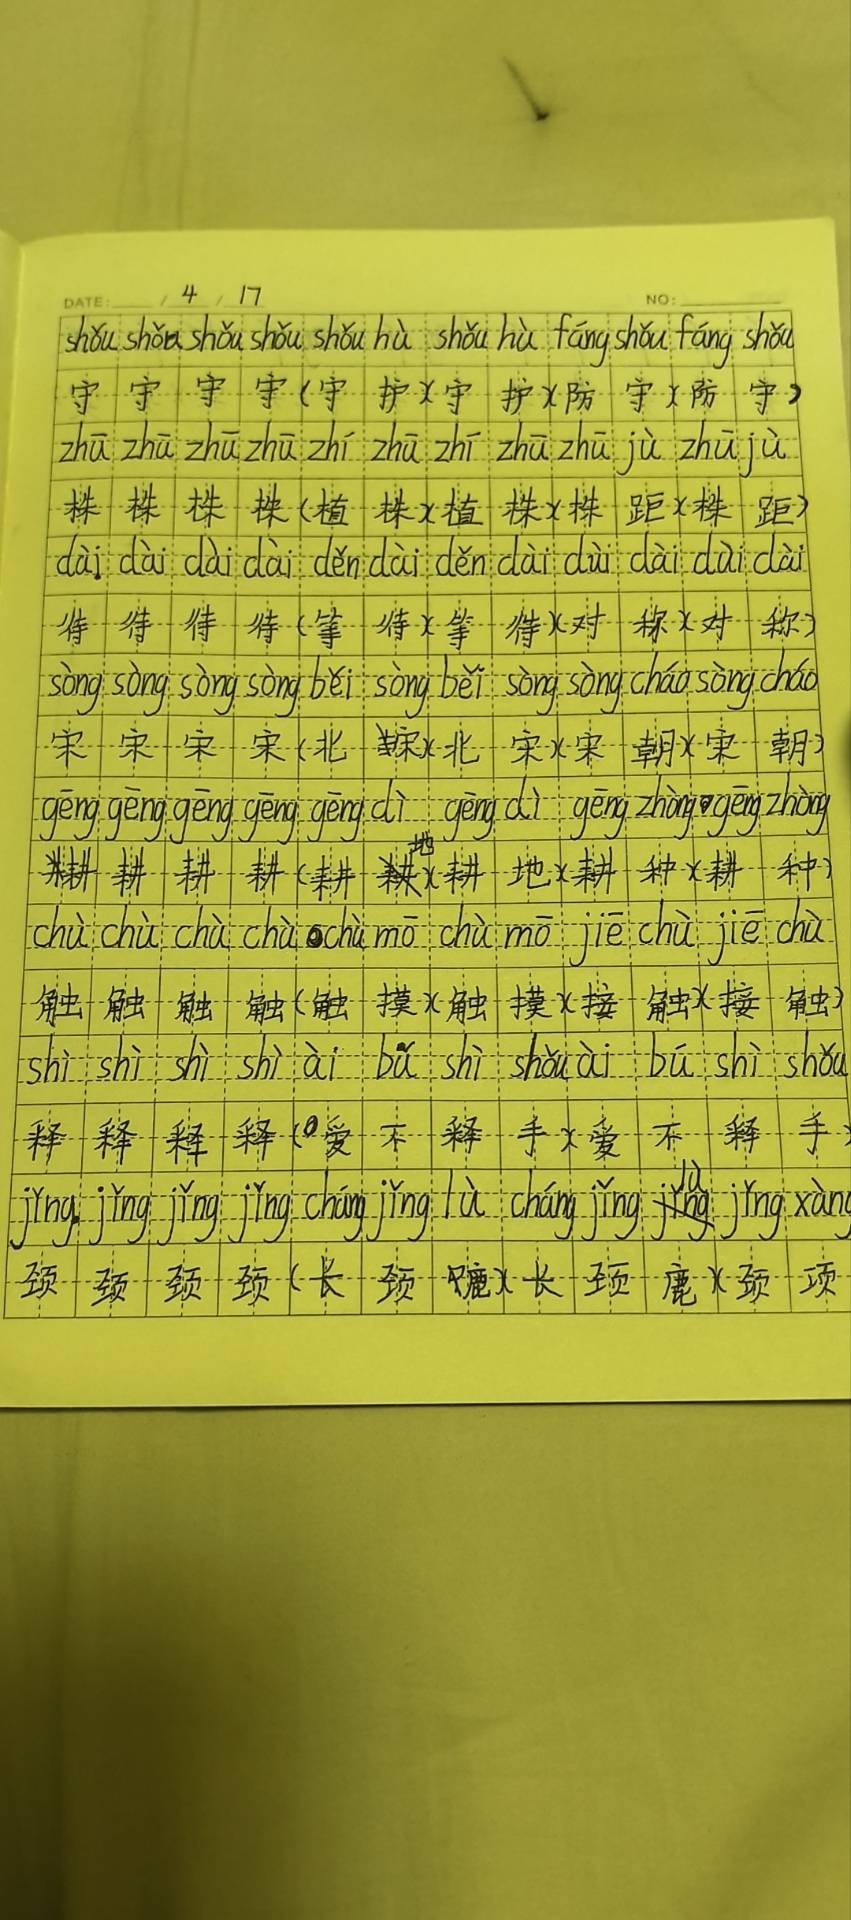 DATE: / 4 / 17 NO:
shǒu shǒu shǒu shǒu shǒu hù shǒu hù fáng shǒu fáng shǒu
守 守 守 守 (守 护)(守 护)(防 守)(防 守)
zhū zhū zhū zhū zhí zhū zhí zhū zhū jù zhū jù
株 株 株 株 (植 株)(植 株)(株 距)(株 距)
dài dài dài dài děn dài děn dài dùi dài dùi dài
待 待 待 待 (等 待)(等 待)(对 称)(对 称)
sòng sòng sòng sòng běi sòng běi sòng sòng cháo sòng cháo
宋 宋 宋 宋 (北 宋)(北 宋)(宋 朝)(宋 朝)
gēng gēng gēng gēng gēng dì gēng dì gēng zhòng gēng zhòng
耕 耕 耕 耕 (耕 地)(耕 地)(耕 种)(耕 种)
chù chù chù chù chù mō chù mō jiē chù jiē chù
触 触 触 触 (触 摸)(触 摸)(接 触)(接 触)
shì shì shì shì ài bú shì shǒu ài bú shì shǒu
释 释 释 释 (爱 不 释 手)(爱 不 释 手)
jǐng jǐng jǐng jǐng cháng jǐng lù cháng jǐng lù jǐng xàng
颈 颈 颈 颈 (长 颈 鹿)(长 颈 鹿)(颈 项